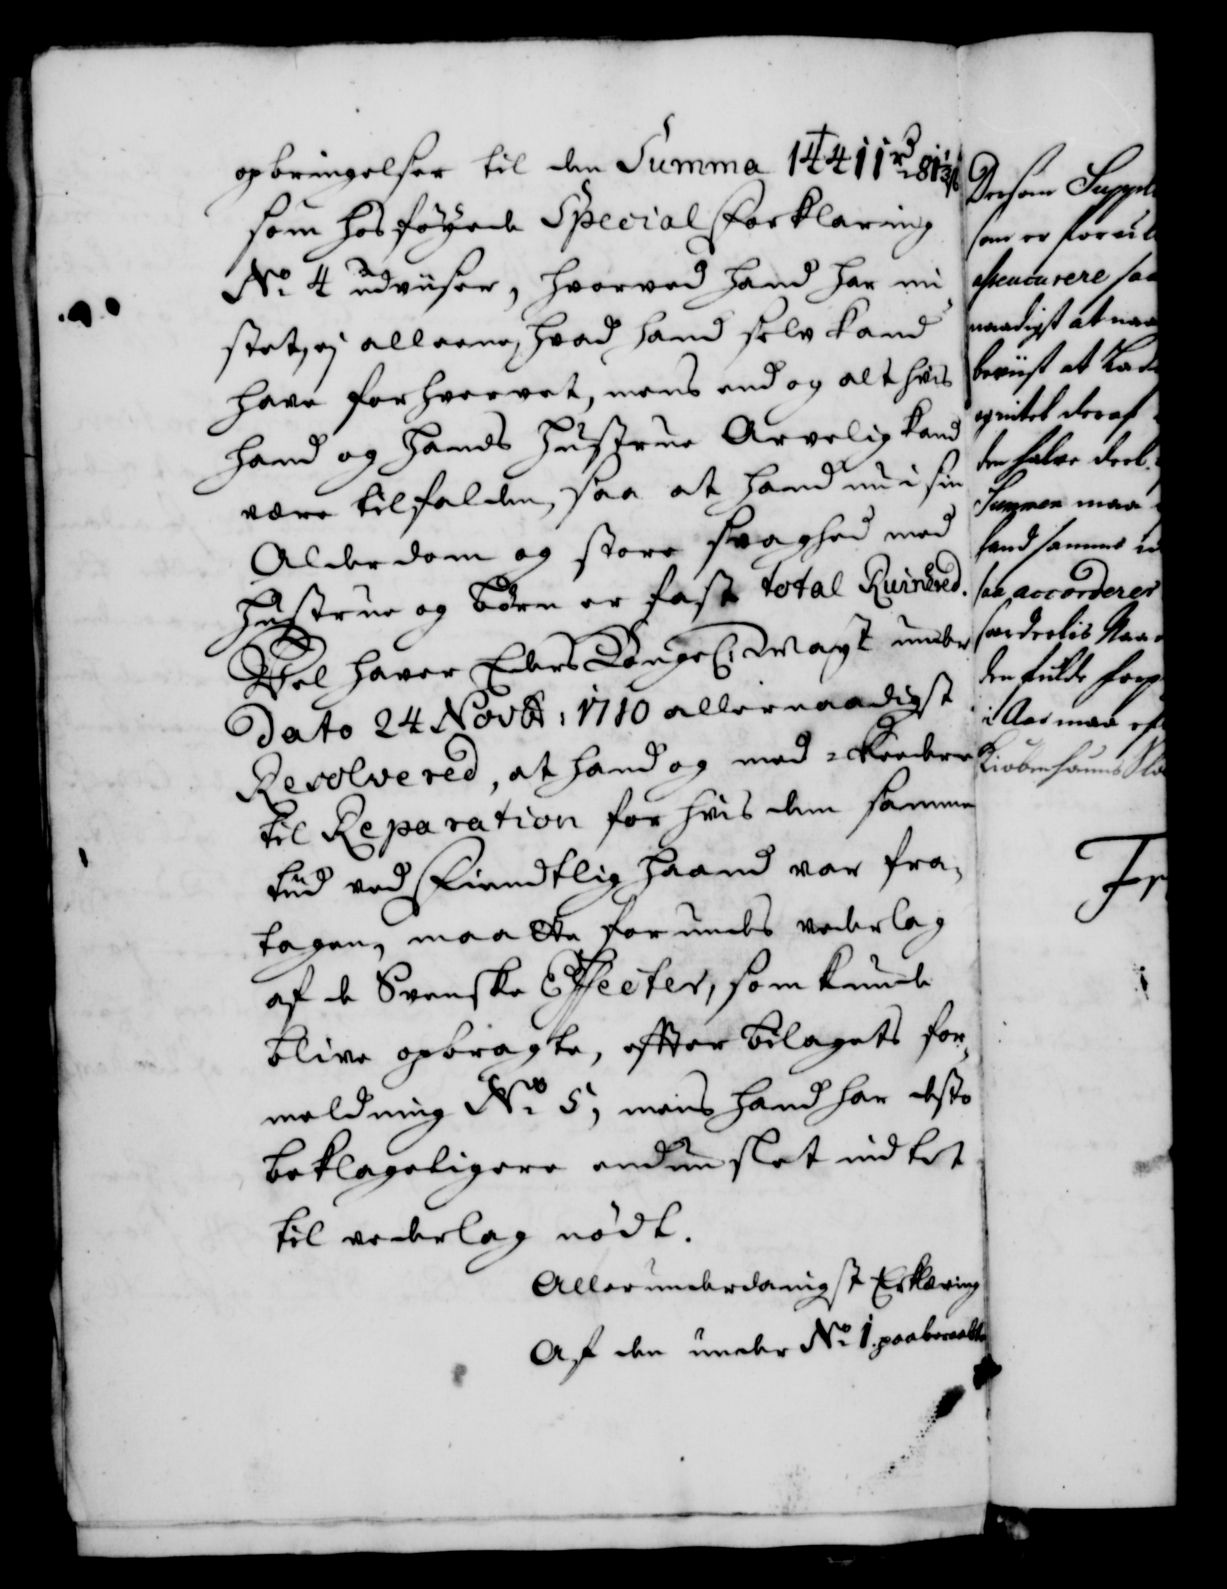 opbringelser til den Summa 14411 rd
som hosföyede Special forklaring
No. 4 udviiser, hvorved hand har mi
stet, ej alleene, hvad hand selv kand
have forhvervet, mens end og alt hvis
hand og hands hustrue Arvelig kand
være tilfalden, saa at hand nu i sin
Alderdom og store svaghed med
hustrue og börn er fast total Ruinered.
Vel haver Eders Konge: Mayt under
Dato 24 Novbr: 1710 allernaadigst
Resolvered, at hand og med
til Reparation for hvis dem samme
tiid ved fiendtlig haand var fra,
tagen, maatte forundes vederlag
af de Svenske Effecter, som kunde
blive opbragte, effter bilagets for,
meldning No. 5, mens hand har dess
beklageligere endnu slet indtet
til vederlag nödt.
Allerunderdanigst Erklæring
Af den under No. 1. paaberaabte
Dersom Suppl
som er forud
naadigst at naa
beviist at
den halve deel
Summen maa
hand samme
saa accorderer
den fulde
i Aar maa
Kiöbenhauns Slo
Fr